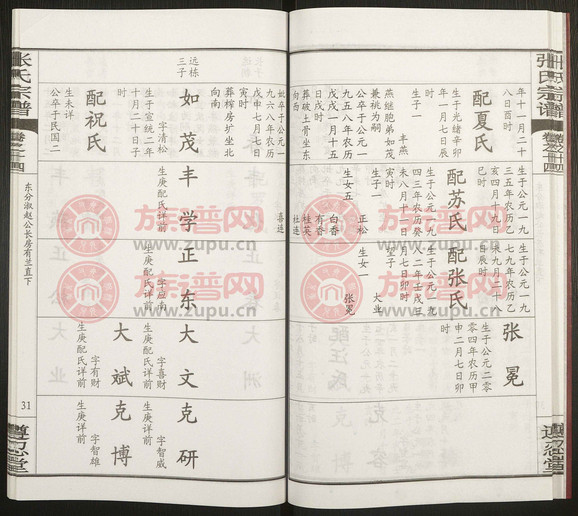 张氏宗谱
卷之三十四
遵忍堂
年十一月二十
八日酉时
配夏氏
生于光绪辛卯
年一月七日辰
时
生子一
丰燕
燕继胞弟如茂
兼祧为嗣
公卒于公元一
九五八年农历
戊戌一月十五
日戌时
葬破土骨坐东
向西
生于公元一九
三五年农历乙
亥四月十九日
时
配苏氏
生于公元一九
四三年农历癸
未八月十一日
时
生子一
正松
生女五
白香
有香
桂英
杜连
喜连
生于公元一九
七九年农历己
未九月二十七
日辰时
配张氏
生于公元一九
八二年壬戌三
月七日卯时
望子一
大业
生女一
张冕
张冕
生于公元二零
零四年农历甲
申二月七日卯
时
妣卒于公元一
九六八年农历
戊申七月七日
寅时
葬榨房扩坐北
向南
远栋
三子
如茂
字清松
生于宣统二年
十月二十日子
时
配祝氏
生未详
公卒于民国二
丰学
生庚配氏详前
正东
字应南
生庚配氏详前
大文
字喜财
生庚配氏详前
大斌
字有财
生庚配氏详前
克研
字智威
生庚详前
克博
字智雄
生庚详前
张氏宗谱
卷之三十四
东分淑赵公长房有兰直下
31
遵忍堂
族谱网
www.zupu.cn
族谱网
www.zupu.cn